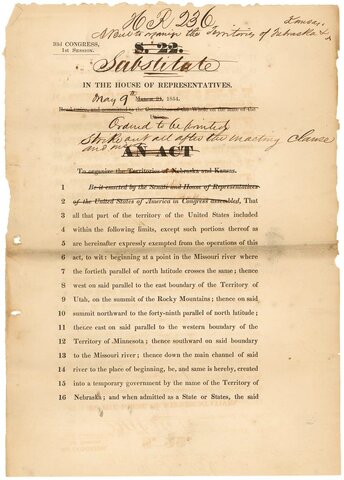 H R 236
A Bill to organize the Territories of Nebraska & Kansas.
33d CONGRESS,
1st Session.
S. 22.
Substitute
IN THE HOUSE OF REPRESENTATIVES.
May 9th March 21, 1854.
Read twice, and committed to the Committee of the Whole on the state of the
Union.
Ordered to be printed.
Strike out all after the enacting clause
and
AN ACT
To organize the Territories of Nebraska and Kansas.
1 Be it enacted by the Senate and House of Representatives
2 of the United States of America in Congress assembled, That
3 all that part of the territory of the United States included
4 within the following limits, except such portions thereof as
5 are hereinafter expressly exempted from the operations of this
6 act, to wit: beginning at a point in the Missouri river where
7 the fortieth parallel of north latitude crosses the same; thence
8 west on said parallel to the east boundary of the Territory of
9 Utah, on the summit of the Rocky Mountains; thence on said
10 summit northward to the forty-ninth parallel of north latitude;
11 thence east on said parallel to the western boundary of the
12 Territory of Minnesota; thence southward on said boundary
13 to the Missouri river; thence down the main channel of said
14 river to the place of beginning, be, and same is hereby, created
15 into a temporary government by the name of the Territory of
16 Nebraska; and when admitted as a State or States, the said